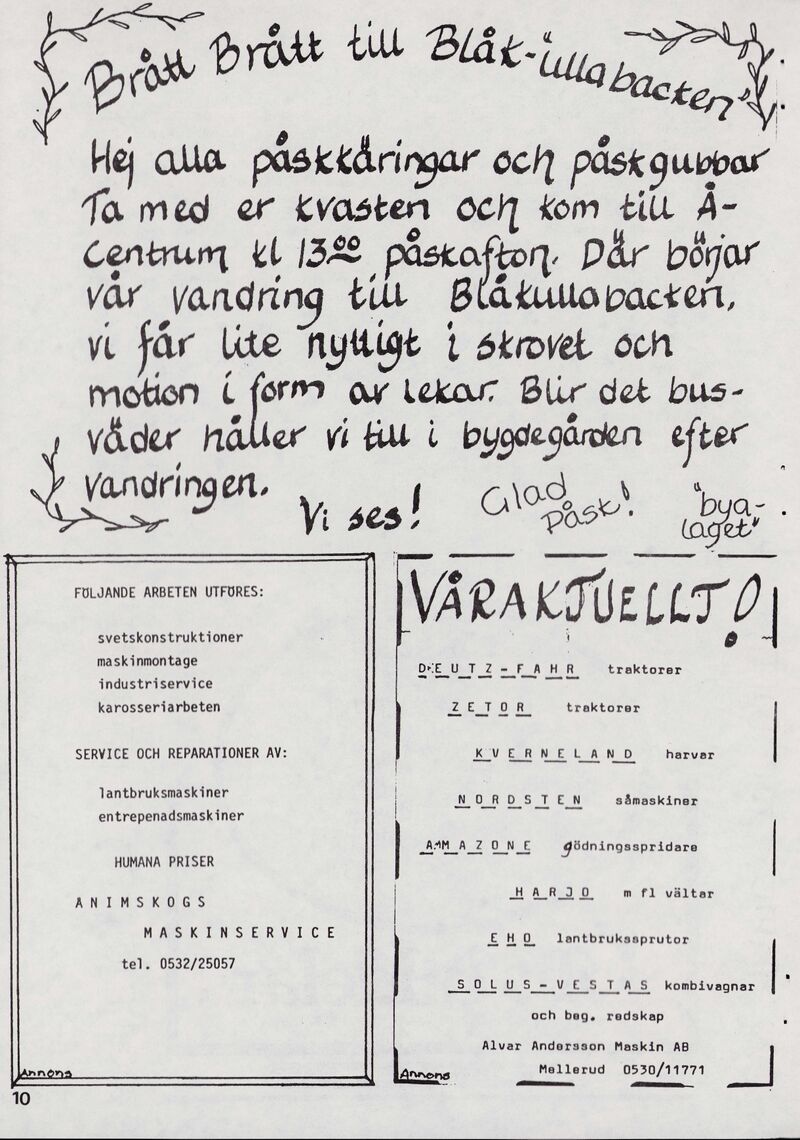 Brått Brått till Blåk-ullabacken"
Hej alla påskkäringar och påskgubbar
Ta med er kvasten och kom till Å-
Centrum kl 13.00 påskafton. Där börjar
vår vandring till Blåkullabacken,
vi får lite nyttigt i skrovet och
motion i form av lekar. Blir det bus-
väder håller vi till i bygdegården efter
vandringen.
Vi ses!
Glad
Påsk!
"bya-
laget"
FÖLJANDE ARBETEN UTFÖRES:
svetskonstruktioner
maskinmontage
industriservice
karosseriarbeten
SERVICE OCH REPARATIONER AV:
lantbruksmaskiner
entrepenadsmaskiner
HUMANA PRISER
ANIMSKOGS
MASKINSERVICE
tel. 0532/25057
Annons
VÅRAKTUELLT!
DEUTZ-FAHR traktorer
ZETOR traktorer
KVERNELAND harvar
NORDSTEN såmaskiner
AMAZONE gödningsspridare
HARJO m fl vältar
EHO lantbrukssprutor
SOLUS-VESTAS kombivagnar
och beg. redskap
Alvar Andersson Maskin AB
Mellerud 0530/11771
Annons
10